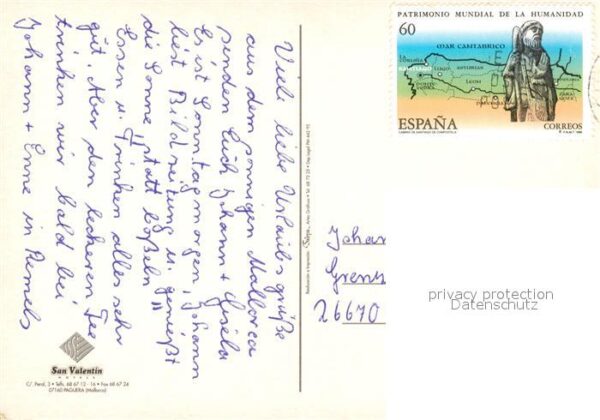 Viele liebe Urlaubsgrüße
aus dem sonnigen Mallorca
senden Euch Johann + Gisela
Es ist Sonntagmorgen, Johann
liest Bildzeitung u. genießt
die Sonne "statt boßeln"
Essen u. Trinken alles sehr
gut. Aber den leckeren Tee
trinken wir bald bei
Johann + Enne in Remels
San Valentín
HOTELS
C/. Peral, 3 • Tells. 68 67 12 - 16 • Fax 68 67 24
07160 PAGUERA (Mallorca)
PATRIMONIO MUNDIAL DE LA HUMANIDAD
60
MAR CANTABRICO
SANTIAGO
LUGO
ASTURIAS
LEON
ESPAÑA
CORREOS
CAMINO DE SANTIAGO DE COMPOSTELA
Johan
Grenz
26670
privacy protection
Datenschutz